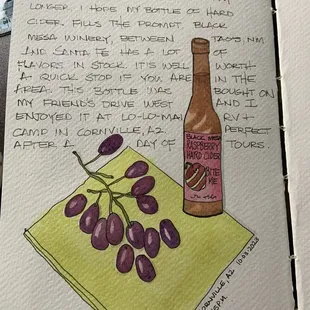 LONGER. I HOPE MY BOTTLE OF HARD
CIDER. FILLS THE PROMPT. BLACK
MESA WINERY, BETWEEN TAOS, NM
AND SANTA FE HAS A LOT OF
FLAVORS IN STOCK. IT'S WELL WORTH
A QUICK STOP IF YOU ARE IN THE
AREA. THIS BOTTLE WAS BOUGHT ON
MY FRIEND'S DRIVE WEST AND I
ENJOYED IT AT LO-LO-MAI RV +
CAMP IN CORNVILLE, AZ PERFECT
AFTER A DAY OF TOURS.
BLACK MESA
RASPBERRY
HARD CIDER
BITE
ME
CORNVILLE, AZ 10.03.2023